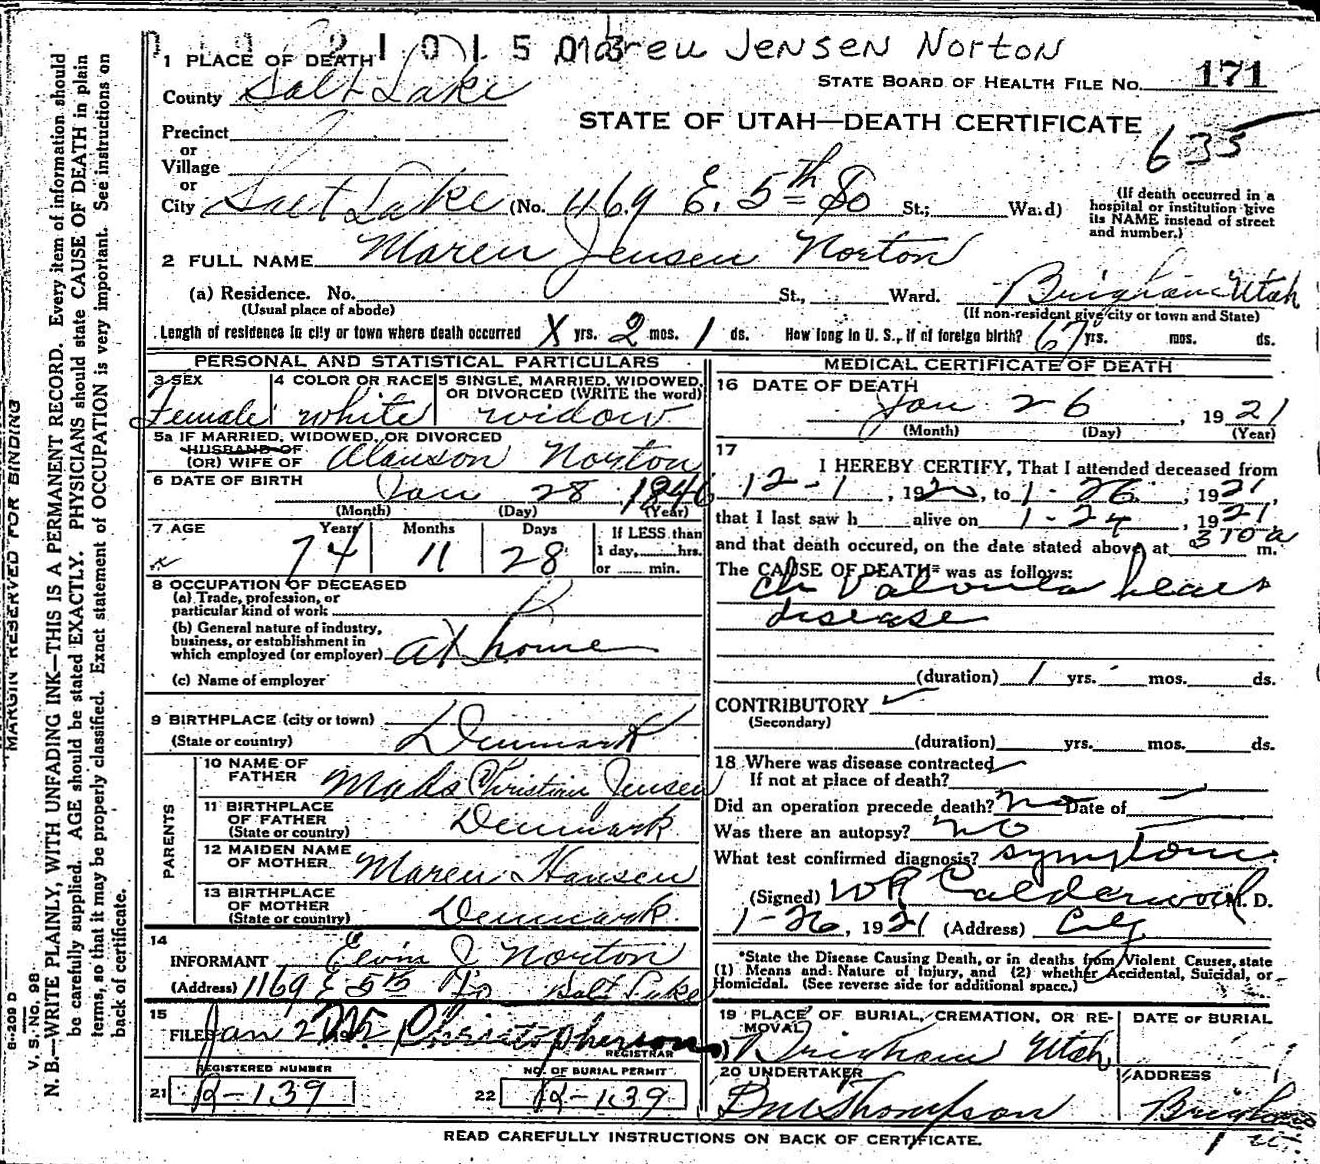 2 1 0 1 5 0 Maren Jensen Norton
1 PLACE OF DEATH
STATE BOARD OF HEALTH FILE No. 171
County Salt Lake
STATE OF UTAH—DEATH CERTIFICATE
635
Precinct
or
Village
or
City Salt Lake (No. 1169 E. 5th So St.; Ward)
(If death occurred in a hospital or institution give its NAME instead of street and number.)
2 FULL NAME Maren Jensen Norton
(a) Residence. No. St., Ward. Brigham Utah
(Usual place of abode) (If non-resident give city or town and State)
Length of residence in city or town where death occurred X yrs. 2 mos. 1 ds. How long in U. S., if of foreign birth? 67 yrs. mos. ds.
PERSONAL AND STATISTICAL PARTICULARS
3 SEX Female
4 COLOR OR RACE white
5 SINGLE, MARRIED, WIDOWED, OR DIVORCED (WRITE the word) widow
5a IF MARRIED, WIDOWED, OR DIVORCED
HUSBAND OF
(OR) WIFE OF Alanson Norton
6 DATE OF BIRTH Jan 28 1846
(Month) (Day) (Year)
7 AGE Years Months Days If LESS than
74 11 28 1 day, hrs.
or min.
8 OCCUPATION OF DECEASED
(a) Trade, profession, or
particular kind of work
(b) General nature of industry,
business, or establishment in
which employed (or employer) at home
(c) Name of employer
9 BIRTHPLACE (city or town)
(State or country) Denmark
PARENTS
10 NAME OF
FATHER Mads Christian Jensen
11 BIRTHPLACE
OF FATHER
(State or country) Denmark
12 MAIDEN NAME
OF MOTHER Maren Hansen
13 BIRTHPLACE
OF MOTHER
(State or country) Denmark
14
INFORMANT Elvin J Norton
(Address) 1169 E 5th So Salt Lake
15
FILED Jan Christopherson
REGISTRAR
REGISTERED NUMBER
21 R-139
NO. OF BURIAL PERMIT
22 R-139
MEDICAL CERTIFICATE OF DEATH
16 DATE OF DEATH
Jan 26, 1921
(Month) (Day) (Year)
17
I HEREBY CERTIFY, That I attended deceased from
12-1, 1920, to 1-26, 1921,
that I last saw h alive on 1-24, 1921
and that death occured, on the date stated above, at 310a m.
The CAUSE OF DEATH* was as follows:
Ch Valvular heart
disease
(duration) 1 yrs. - mos. ds.
CONTRIBUTORY
(Secondary)
(duration) yrs. mos. ds.
18 Where was disease contracted
If not at place of death?
Did an operation precede death? no Date of
Was there an autopsy? no
What test confirmed diagnosis? symptoms
(Signed) WR Calderwood M. D.
1-26, 1921 (Address) City
*State the Disease Causing Death, or in deaths from Violent Causes, state
(1) Means and Nature of Injury, and (2) whether Accidental, Suicidal, or
Homicidal. (See reverse side for additional space.)
19 PLACE OF BURIAL, CREMATION, OR RE-
MOVAL Brigham Utah
DATE OF BURIAL
20 UNDERTAKER
Thompson
ADDRESS
Brigham
Ut.
READ CAREFULLY INSTRUCTIONS ON BACK OF CERTIFICATE.
MARGIN RESERVED FOR BINDING
S-209 D
V. S. No. 98
N. B.—WRITE PLAINLY, WITH UNFADING INK—THIS IS A PERMANENT RECORD. Every item of information should
be carefully supplied. AGE should be stated EXACTLY. PHYSICIANS should state CAUSE OF DEATH in plain
terms, so that it may be properly classified. Exact statement of OCCUPATION is very important. See instructions on
back of certificate.